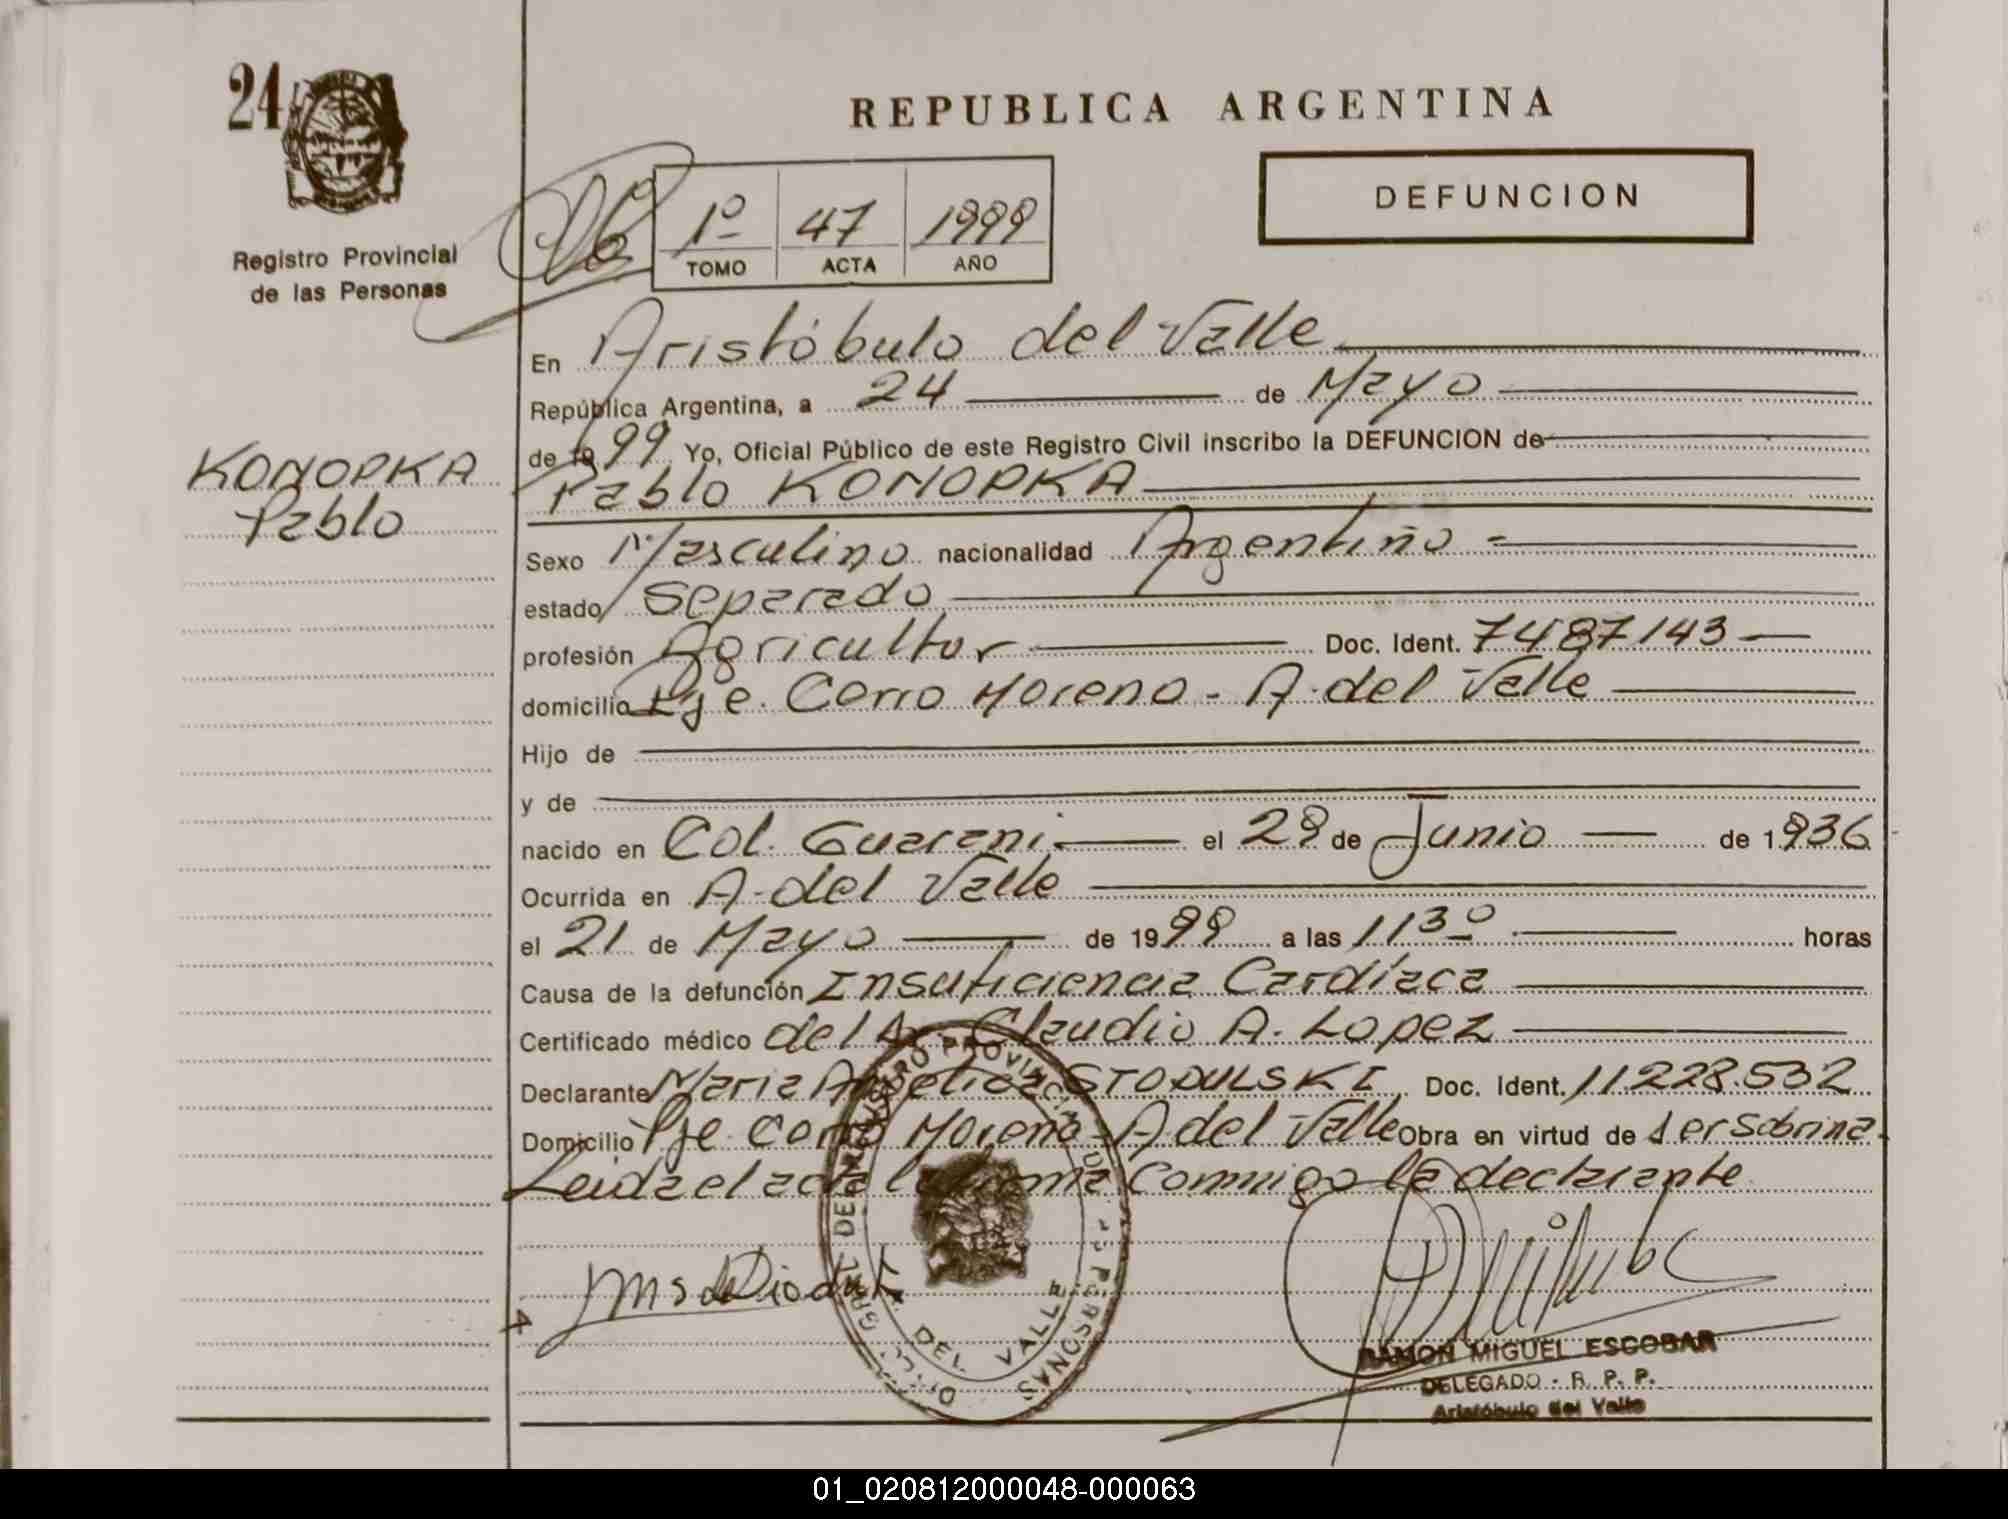 24
REPUBLICA ARGENTINA
DEFUNCION
1º 47 1999
TOMO ACTA AÑO
Registro Provincial
de las Personas
En Aristóbulo del Valle
República Argentina, a 24 de Mayo
de 1999 Yo, Oficial Público de este Registro Civil inscribo la DEFUNCION de
Pablo KONOPKA
KONOPKA
Pablo
Sexo Masculino nacionalidad Argentino
estado Separado
profesión Agricultor Doc. Ident. 7487143
domicilio Pje. Cerro Moreno - A. del Valle
Hijo de
y de
nacido en Col. Guarani el 29 de Junio de 1936
Ocurrida en A. del Valle
el 21 de Mayo de 1999 a las 1130 horas
Causa de la defunción Insuficiencia Cardíaca
Certificado médico del Dr. Claudio A. Lopez
Declarante Maria Angelica STODULSKI Doc. Ident. 11228.532
Domicilio Pje Cerro Moreno - A del Valle Obra en virtud de ser sobrina.
Leida el acta la firma conmigo la declarante
REGISTRO PROVINCIAL DE LAS PERSONAS
DEL VALLE
RAMON MIGUEL ESCOBAR
DELEGADO - R. P. P.
Aristóbulo del Valle
01_020812000048-000063